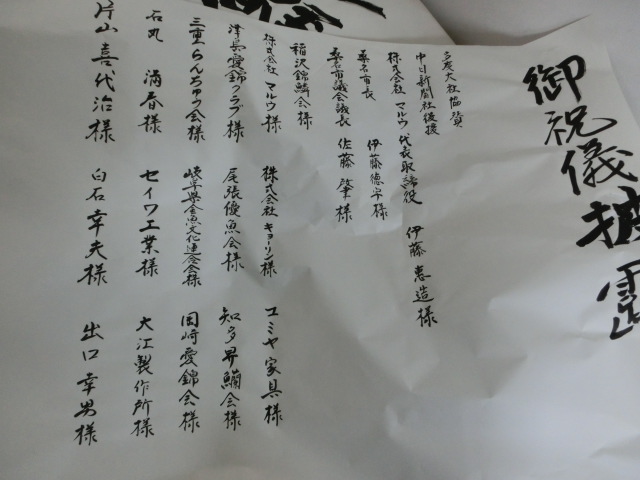 御祝儀披露
多度大社協賛
中日新聞社後援
株式会社 マルウ 代表取締役 伊藤惠造様
桑名市長 伊藤徳宇様
桑名市議会議長 佐藤肇様
稲沢錦鱗会様
株式会社 マルウ様 株式会社 キョーリン様 ユミヤ家具様
津島愛錦クラブ様 尾張優魚会様 知多昇鱗会様
三重らんちゅう会様 岐阜県金魚文化連合会様 岡崎愛錦会様
石丸 満春様 セイワ工業様 大江製作所様
片山喜代治様 白石幸夫様 出口幸男様